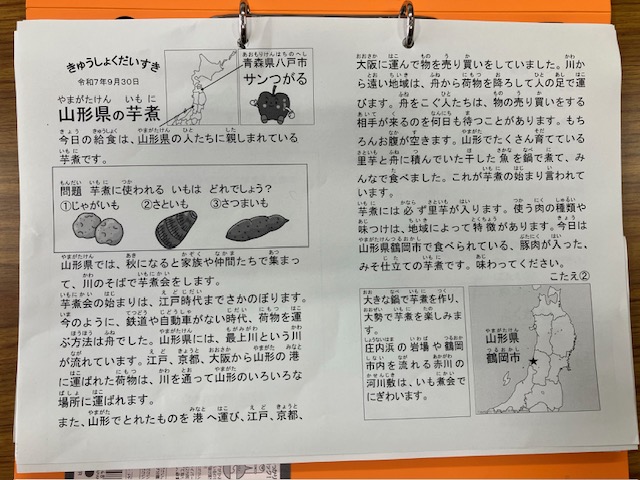 きゅうしょくだいすき
令和7年9月30日
山形県の芋煮
青森県八戸市
サンつがる
今日の給食は、山形県の人たちに親しまれている
芋煮です。
問題 芋煮に使われる いもは どれでしょう？
①じゃがいも ②さといも ③さつまいも
山形県では、秋になると家族や仲間たちで集まっ
て、川のそばで芋煮会をします。
芋煮会の始まりは、江戸時代までさかのぼります。
今のように、鉄道や自動車がない時代、荷物を運
ぶ方法は舟でした。山形県には、最上川という川
が流れています。江戸、京都、大阪から山形の港
に運ばれた荷物は、川を通って山形のいろいろな
場所に運ばれます。
また、山形でとれたものを港へ運び、江戸、京都、
大阪に運んで物を売り買いをしていました。川か
ら遠い地域は、舟から荷物を降ろして人の足で運
びます。舟をこぐ人たちは、物の売り買いをする
相手が来るのを何日も待つことがあります。もち
ろんお腹が空きます。山形でたくさん育てている
里芋と舟に積んでいた干した魚を鍋で煮て、み
んなで食べました。これが芋煮の始まり言われて
います。
芋煮には必ず里芋が入ります。使う肉の種類や
味つけは、地域によって特徴があります。今日は
山形県鶴岡市で食べられている、豚肉が入った、
みそ仕立ての芋煮です。味わってください。
こたえ②
大きな鍋で芋煮を作り、
大勢で芋煮を楽しみま
す。
庄内浜の岩場や鶴岡
市内を流れる赤川の
河川敷は、いも煮会で
にぎわいます。
山形県
鶴岡市